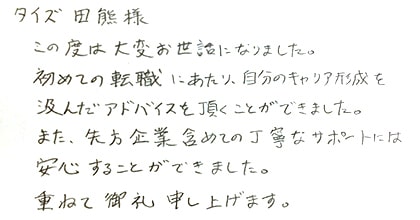 タイズ 田熊様
この度は大変お世話になりました。
初めての転職にあたり、自分のキャリア形成を
汲んだアドバイスを頂くことができました。
また、先方企業含めての丁寧なサポートには
安心することができました。
重ねて御礼申し上げます。